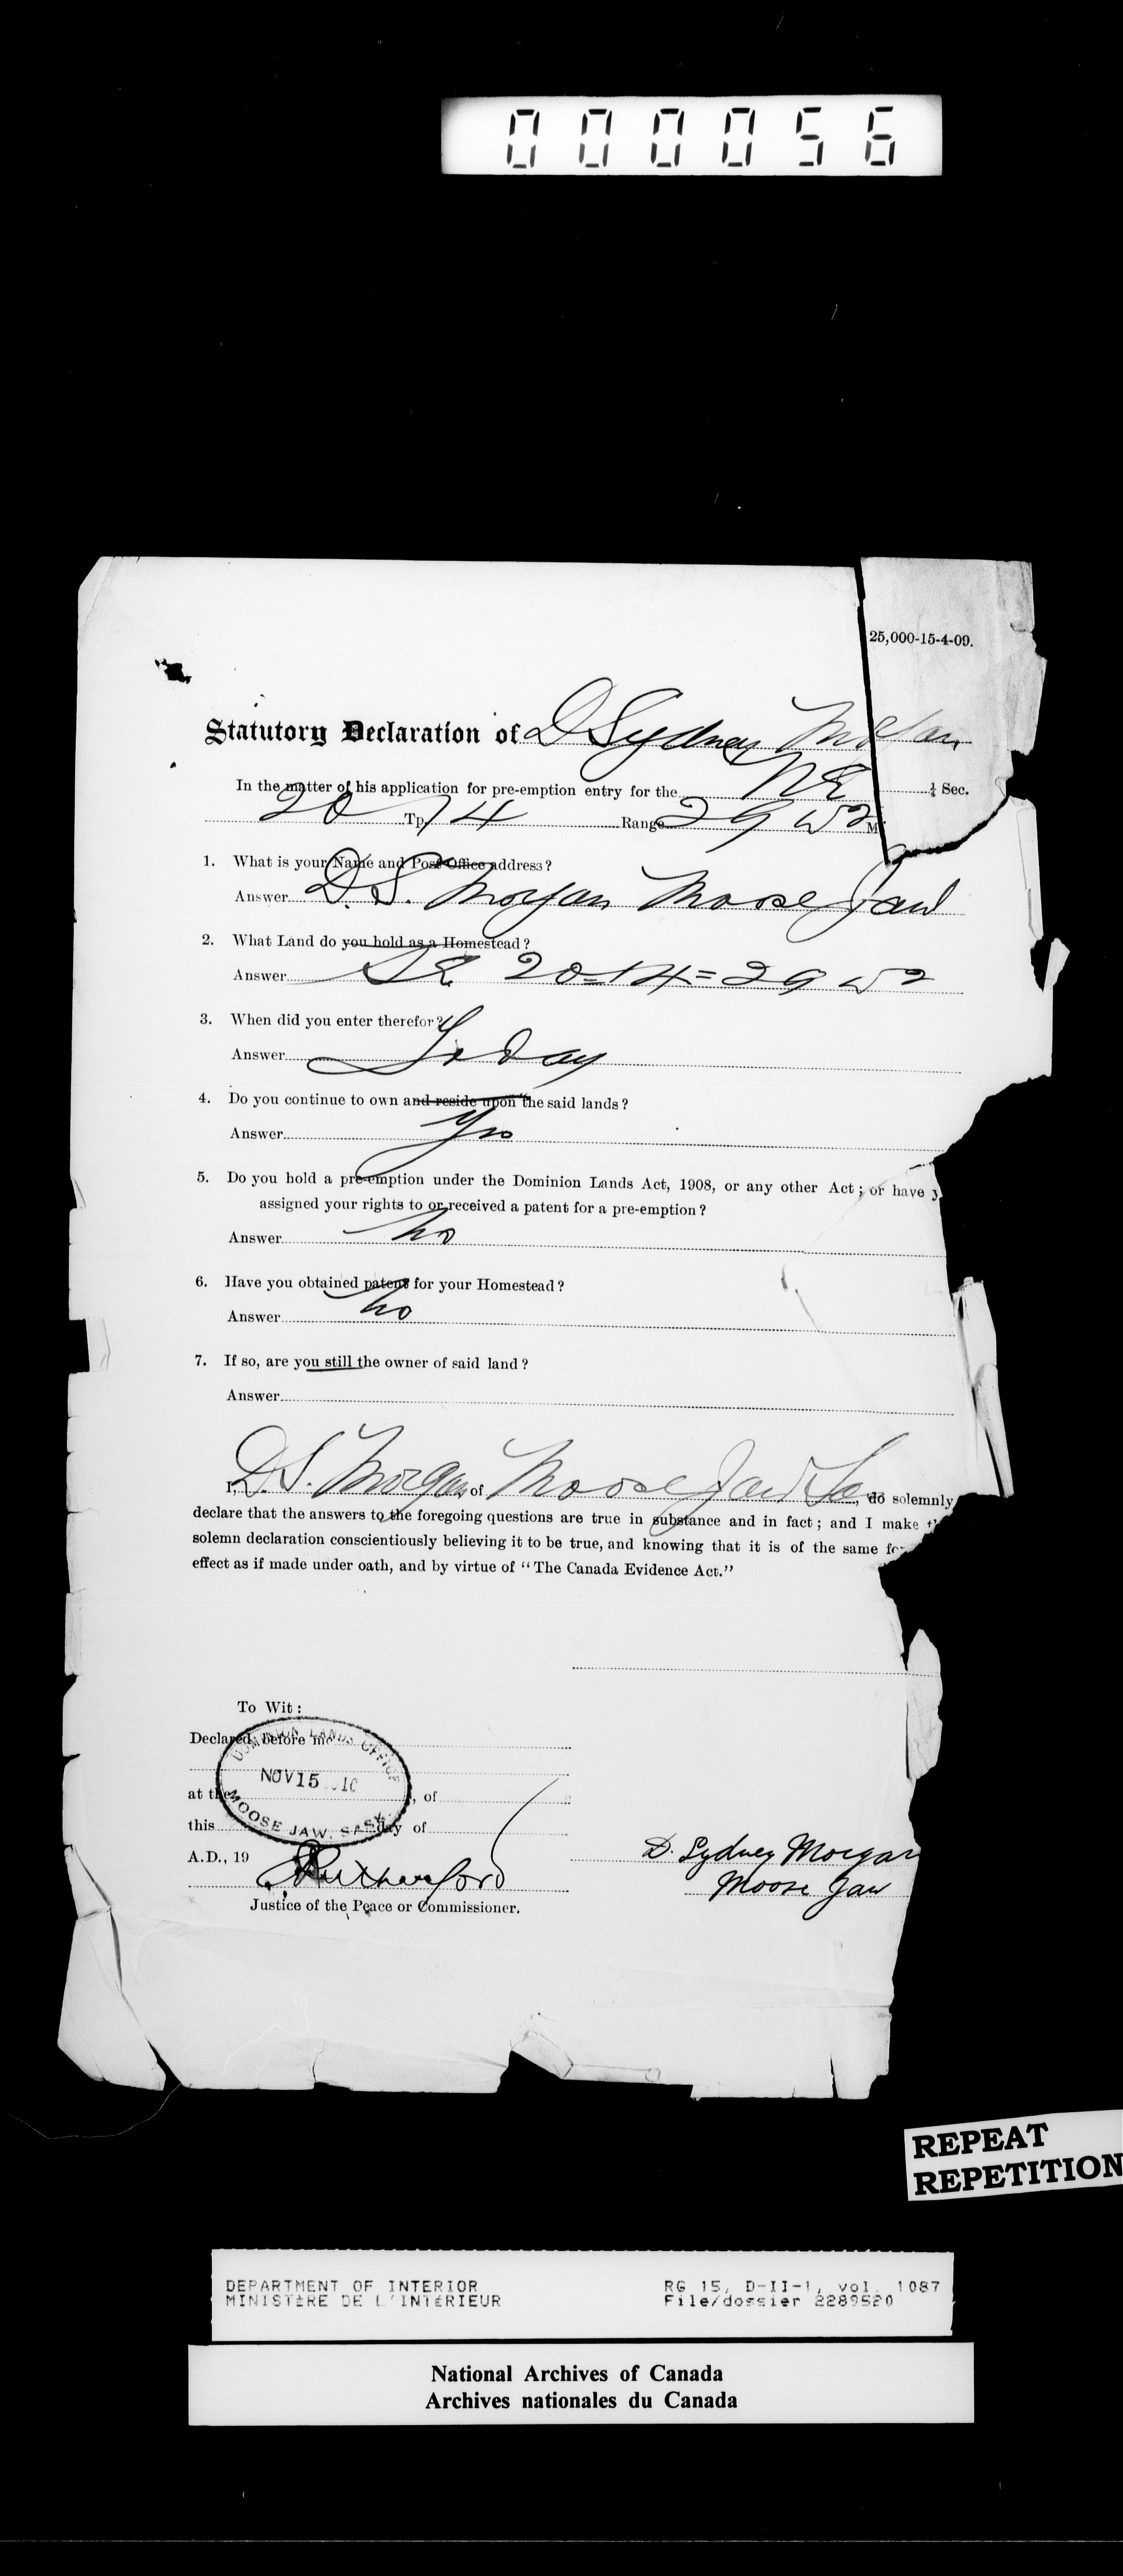 000056
25,000-15-4-09.
Statutory Declaration of D Sydney Morgan
In the matter of his application for pre-emption entry for the NE ¼ Sec.
20 Tp. 14 Range 29 W2 M
1. What is your Name and Post Office address?
Answer D. S. Morgan Moose Jaw
2. What Land do you hold as a Homestead?
Answer SE 20=14=29 W2
3. When did you enter therefor?
Answer Today
4. Do you continue to own and reside upon the said lands?
Answer Yes
5. Do you hold a pre-emption under the Dominion Lands Act, 1908, or any other Act; or have y
assigned your rights to or received a patent for a pre-emption?
Answer No
6. Have you obtained patent for your Homestead?
Answer No
7. If so, are you still the owner of said land?
Answer
I, D. S. Morgan of Moose Jaw, do solemnly
declare that the answers to the foregoing questions are true in substance and in fact; and I make
solemn declaration conscientiously believing it to be true, and knowing that it is of the same
effect as if made under oath, and by virtue of "The Canada Evidence Act."
To Wit:
Declared before me
DOMINION LANDS OFFICE
NOV 15 1910
MOOSE JAW, SASK.
at the , of
this day of
A.D., 19
Rutherford
Justice of the Peace or Commissioner.
D. Sydney Morgan
Moose Jaw
REPEAT
REPETITION
DEPARTMENT OF INTERIOR RG 15, D-II-1, vol. 1087
MINISTÈRE DE L'INTÉRIEUR File/dossier 2289520
National Archives of Canada
Archives nationales du Canada